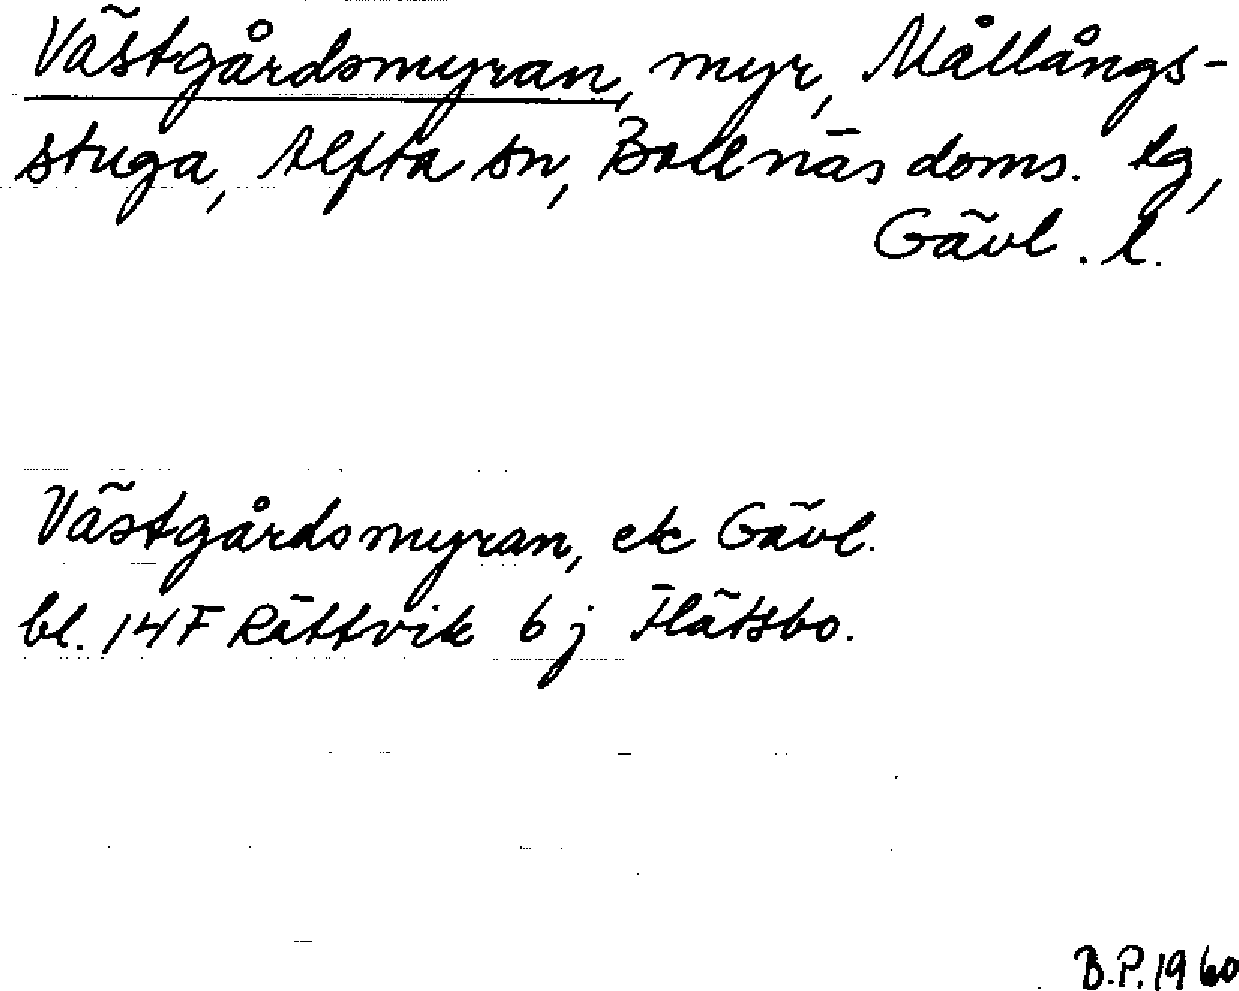 Västgårdsmyran, myr, Mållångs-
stuga, Alfta sn, Bollnäs doms. lg,
Gävl. l.
Västgårdsmyran, ek Gävl.
bl. 14F Rättvik 6 j Flätsbo.
B.P. 1960